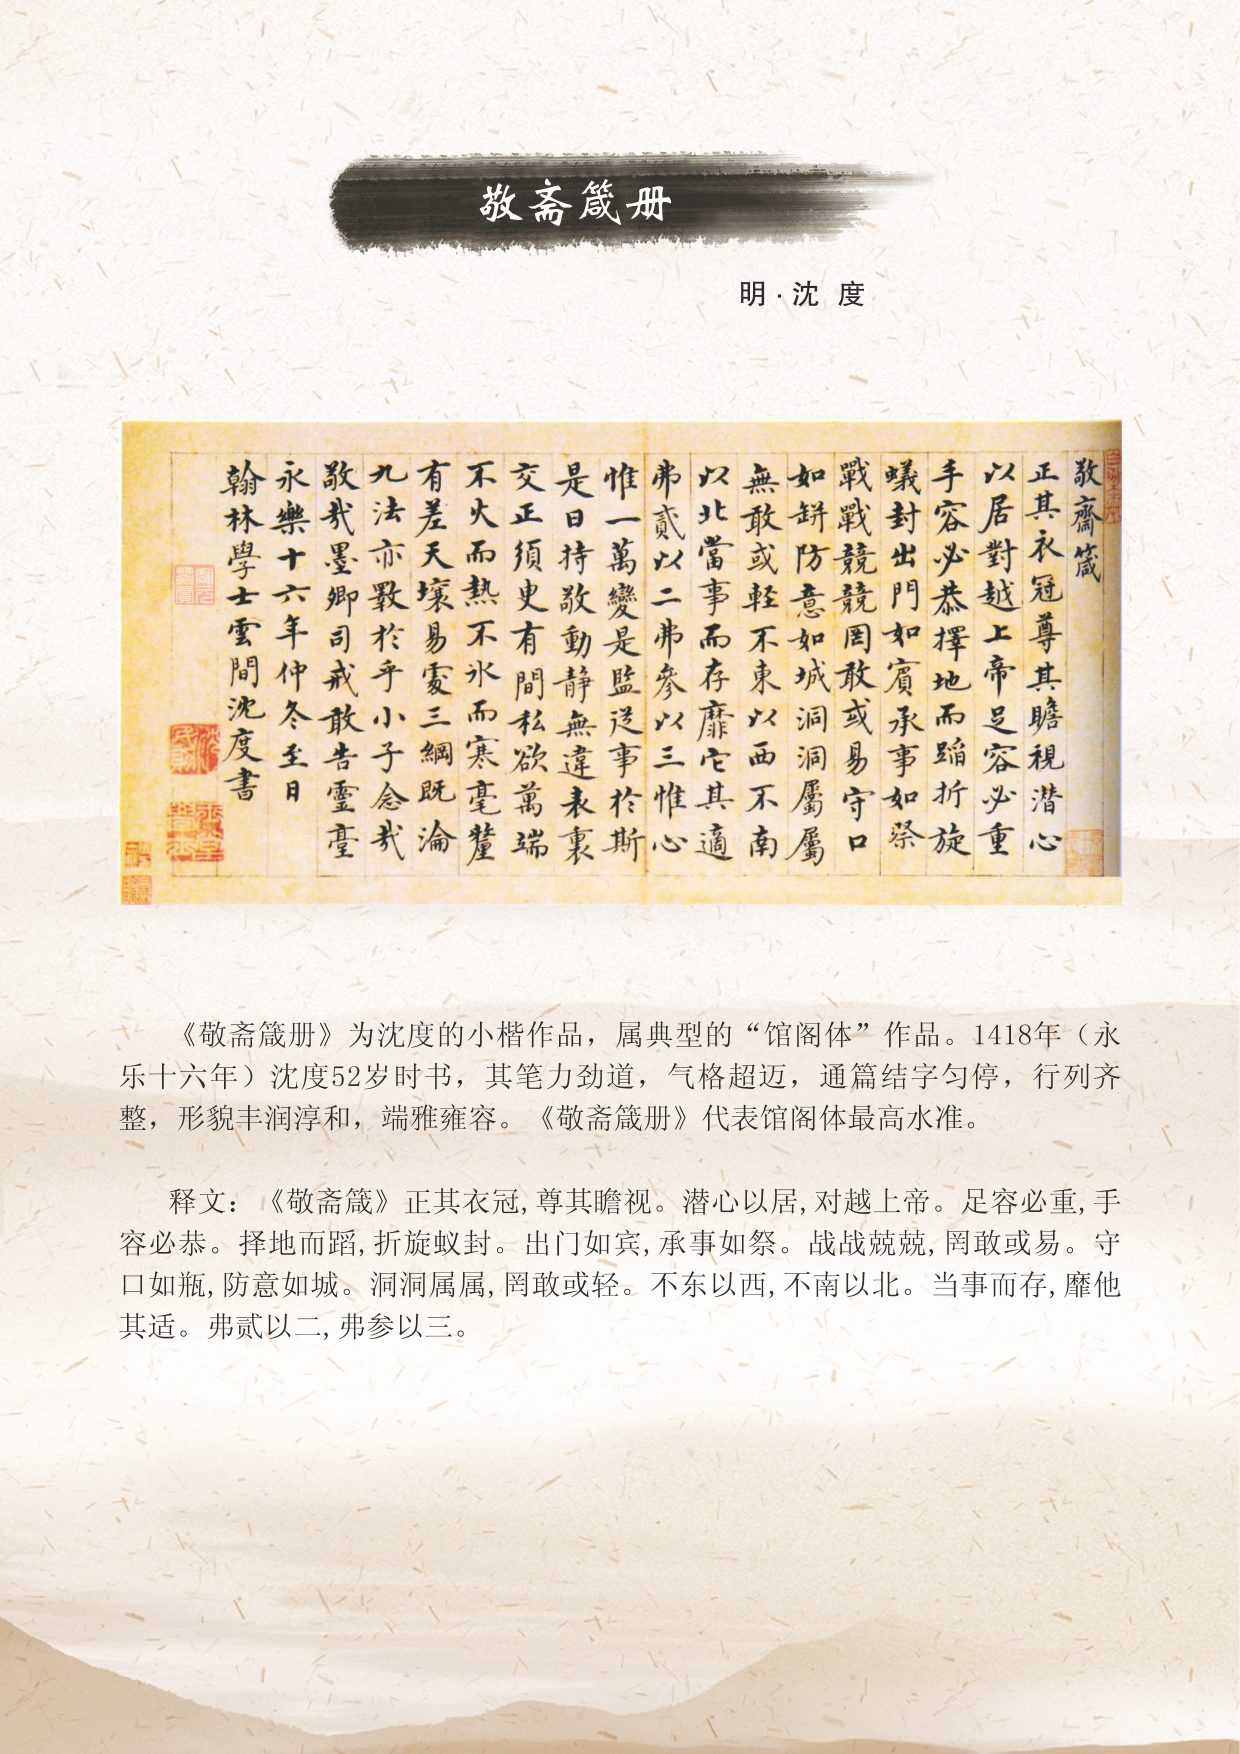 敬斋箴册
明·沈 度
敬齋箴
正其衣冠尊其瞻視潜心
以居對越上帝足容必重
手容必恭擇地而蹈折旋
蟻封出門如賓承事如祭
戰戰兢兢罔敢或易守口
如缾防意如城洞洞屬屬
無敢或輕不東以西不南
以北當事而存靡它其適
弗貳以二弗參以三惟心
惟一萬變是監從事於斯
是日持敬動静無違表裏
交正須臾有間私欲萬端
不火而熱不氷而寒毫釐
有差天壤易處三綱既淪
九法亦斁於乎小子念哉
敬哉墨卿司戒敢告靈臺
永樂十六年仲冬至日
翰林學士雲間沈度書
《敬斋箴册》为沈度的小楷作品，属典型的“馆阁体”作品。1418年（永
乐十六年）沈度52岁时书，其笔力劲道，气格超迈，通篇结字匀停，行列齐
整，形貌丰润淳和，端雅雍容。《敬斋箴册》代表馆阁体最高水准。
释文：《敬斋箴》正其衣冠,尊其瞻视。潜心以居,对越上帝。足容必重,手
容必恭。择地而蹈,折旋蚁封。出门如宾,承事如祭。战战兢兢,罔敢或易。守
口如瓶,防意如城。洞洞属属,罔敢或轻。不东以西,不南以北。当事而存,靡他
其适。弗贰以二,弗参以三。